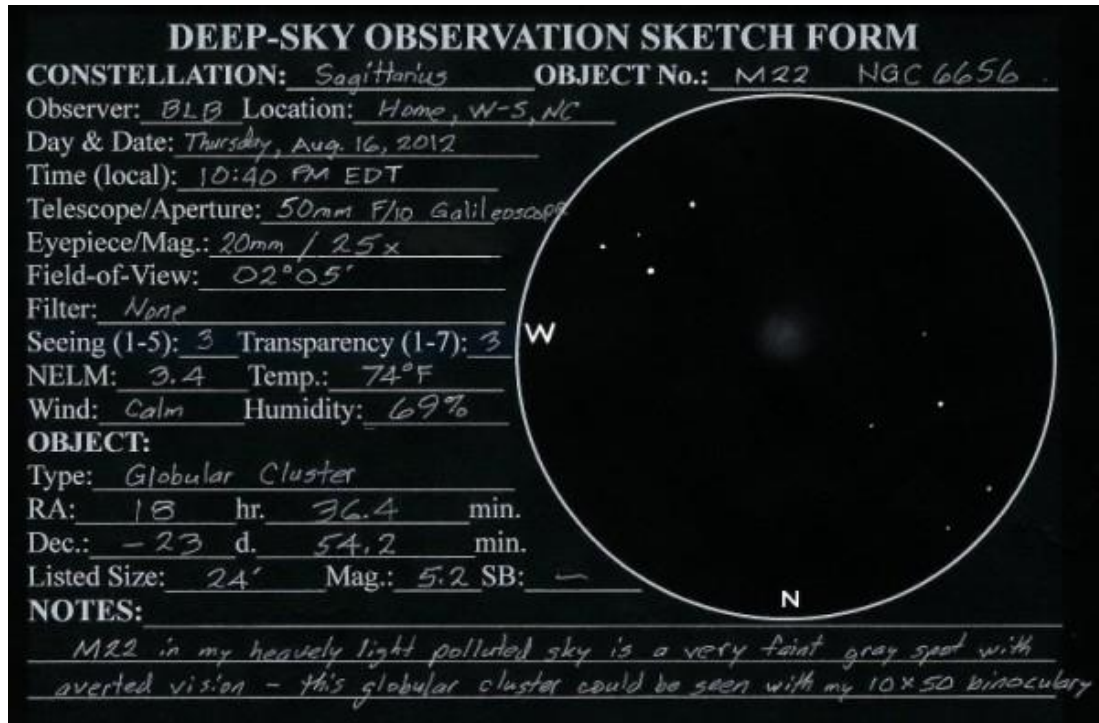 DEEP-SKY OBSERVATION SKETCH FORM
CONSTELLATION: Sagittarius OBJECT No.: M22 NGC 6656
Observer: BLB Location: Home, W-S, NC
Day & Date: Thursday, Aug. 16, 2012
Time (local): 10:40 PM EDT
Telescope/Aperture: 50mm F/10 Galileoscope
Eyepiece/Mag.: 20mm / 25x
Field-of-View: 02°05'
Filter: None
Seeing (1-5): 3 Transparency (1-7): 3
W
NELM: 3.4 Temp.: 74°F
Wind: Calm Humidity: 69%
OBJECT:
Type: Globular Cluster
RA: 18 hr. 36.4 min.
Dec.: -23 d. 54.2 min.
Listed Size: 24' Mag.: 5.2 SB: —
N
NOTES:
M22 in my heavely light polluted sky is a very faint gray spot with
averted vision - this globular cluster could be seen with my 10x50 binoculary